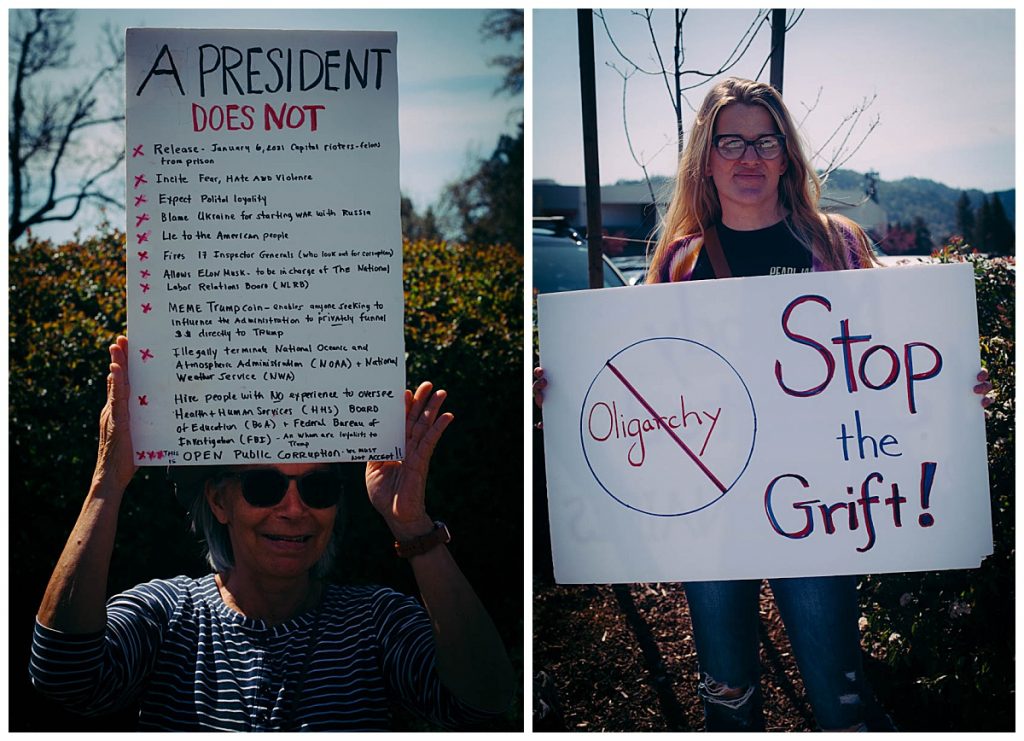 A PRESIDENT
DOES NOT
x Release - January 6, 2021 Capital rioters-felons
from prison
x Incite Fear, Hate and Violence
x Expect Polital loyality
x Blame Ukraine for starting war with Russia
x Lie to the American people
x Fires 17 Inspector Generals (who look out for corruption)
x Allows Elon Musk - to be in charge of The National
x Labor Relations Board (NLRB)
x MEME Trump coin - enables anyone seeking to
influence the Administration to privately funnel
$$ directly to Trump
x Illegally terminate National Oceanic and
Atmospheric Administration (NOAA) + National
Weather Service (NWA)
x Hire people with NO experience to oversee
Health + Human Services (HHS) Board
of Education (BoA) + Federal Bureau of
Investigation (FBI) - An whom are loyalits to
Trump
xxx This is OPEN Public Corruption - We must
NOT ACCEPT!!
PEARL JA
Oligarchy
Stop
the
Grift!